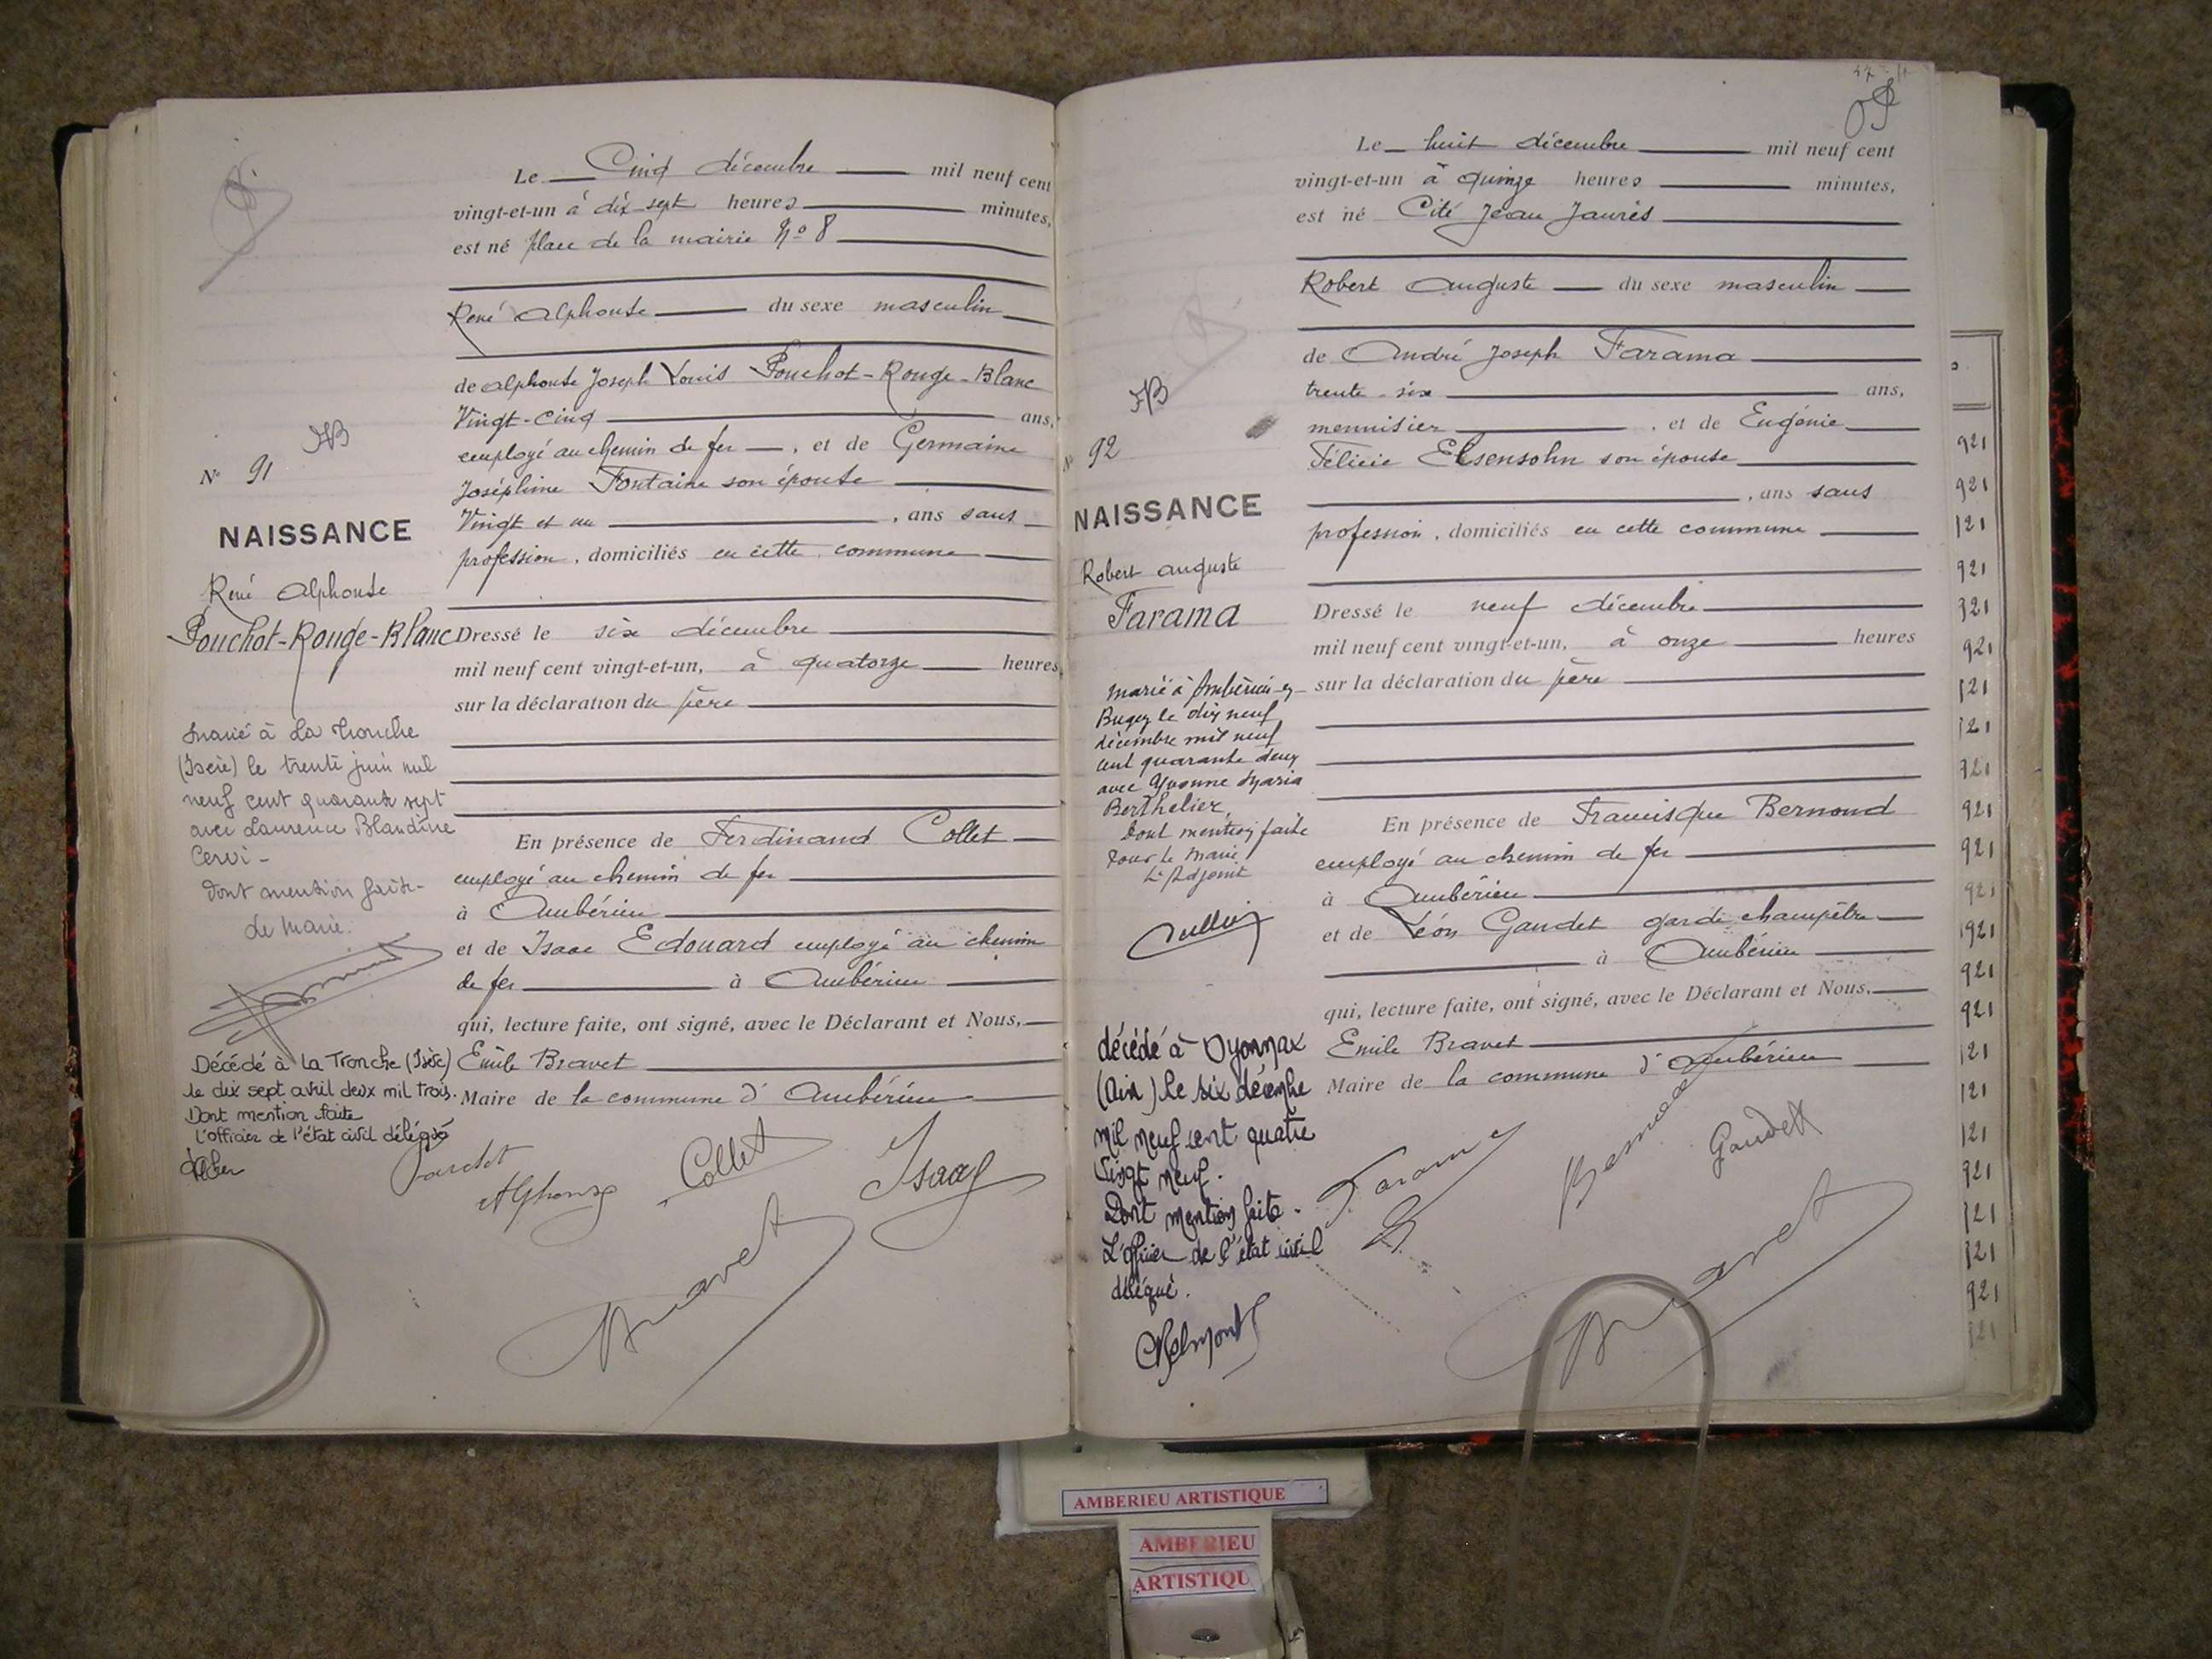 Le Cinq décembre mil neuf cent
vingt-et-un à dix sept heures minutes,
est né place de la mairie No 8
René Alphonse du sexe masculin
de Alphonse Joseph Louis Pouchot-Rouge-Blanc
Vingt-cinq ans,
employé au chemin de fer, et de Germaine
Joséphine Fontaine son épouse
Vingt et un, ans sans
profession, domiciliés en cette commune
Dressé le six décembre
mil neuf cent vingt-et-un, à quatorze heures
sur la déclaration du père
En présence de Ferdinand Collet
employé au chemin de fer
à Ambérieu
et de Isaac Edouard employé au chemin
de fer à Ambérieu
qui, lecture faite, ont signé, avec le Déclarant et Nous,
Emile Bravet
Maire de la commune d'Ambérieu
Pouchot
Alphonse
Collet
Isaac
Bravet
No 91
NAISSANCE
René Alphonse
Pouchot-Rouge-Blanc
Marié à La Tronche
(Isère) le trente juin mil
neuf cent quarante sept
avec Laurence Blandine
Cervi -
Dont mention faite -
Le Maire.
Décédé à La Tronche (Isère)
le dix sept avril deux mil trois.
Dont mention faite
L'officier de l'état civil délégué
Le huit décembre mil neuf cent
vingt-et-un à quinze heures minutes,
est né Cité Jean Jaurès
Robert Auguste du sexe masculin
de André Joseph Farama
trente-six ans,
menuisier, et de Eugénie
Félicie Elsensohn son épouse
, ans sans
profession, domiciliés en cette commune
Dressé le neuf décembre
mil neuf cent vingt-et-un, à onze heures
sur la déclaration du père
En présence de Francisque Bernond
employé au chemin de fer
à Ambérieu
et de Léon Gaudet garde champêtre
à Ambérieu
qui, lecture faite, ont signé, avec le Déclarant et Nous,
Emile Bravet
Maire de la commune d'Ambérieu
Farama
Bernond
Gaudet
Bravet
No 92
NAISSANCE
Robert Auguste
Farama
Marié à Ambérieu-en-
Bugey le dix neuf
décembre mil neuf
cent quarante deux
avec Yvonne Maria
Berthelier,
Dont mention faite
Pour le Maire
L'Adjoint
décédé à Oyonnax
(Ain) le six décembre
mil neuf cent quatre
vingt neuf.
Dont mention faite.
L'officier de l'état civil
délégué.
921
921
121
921
921
921
121
121
921
921
921
921
921
921
921
121
121
121
921
121
121
921
921
AMBERIEU ARTISTIQUE
AMBERIEU
ARTISTIQU